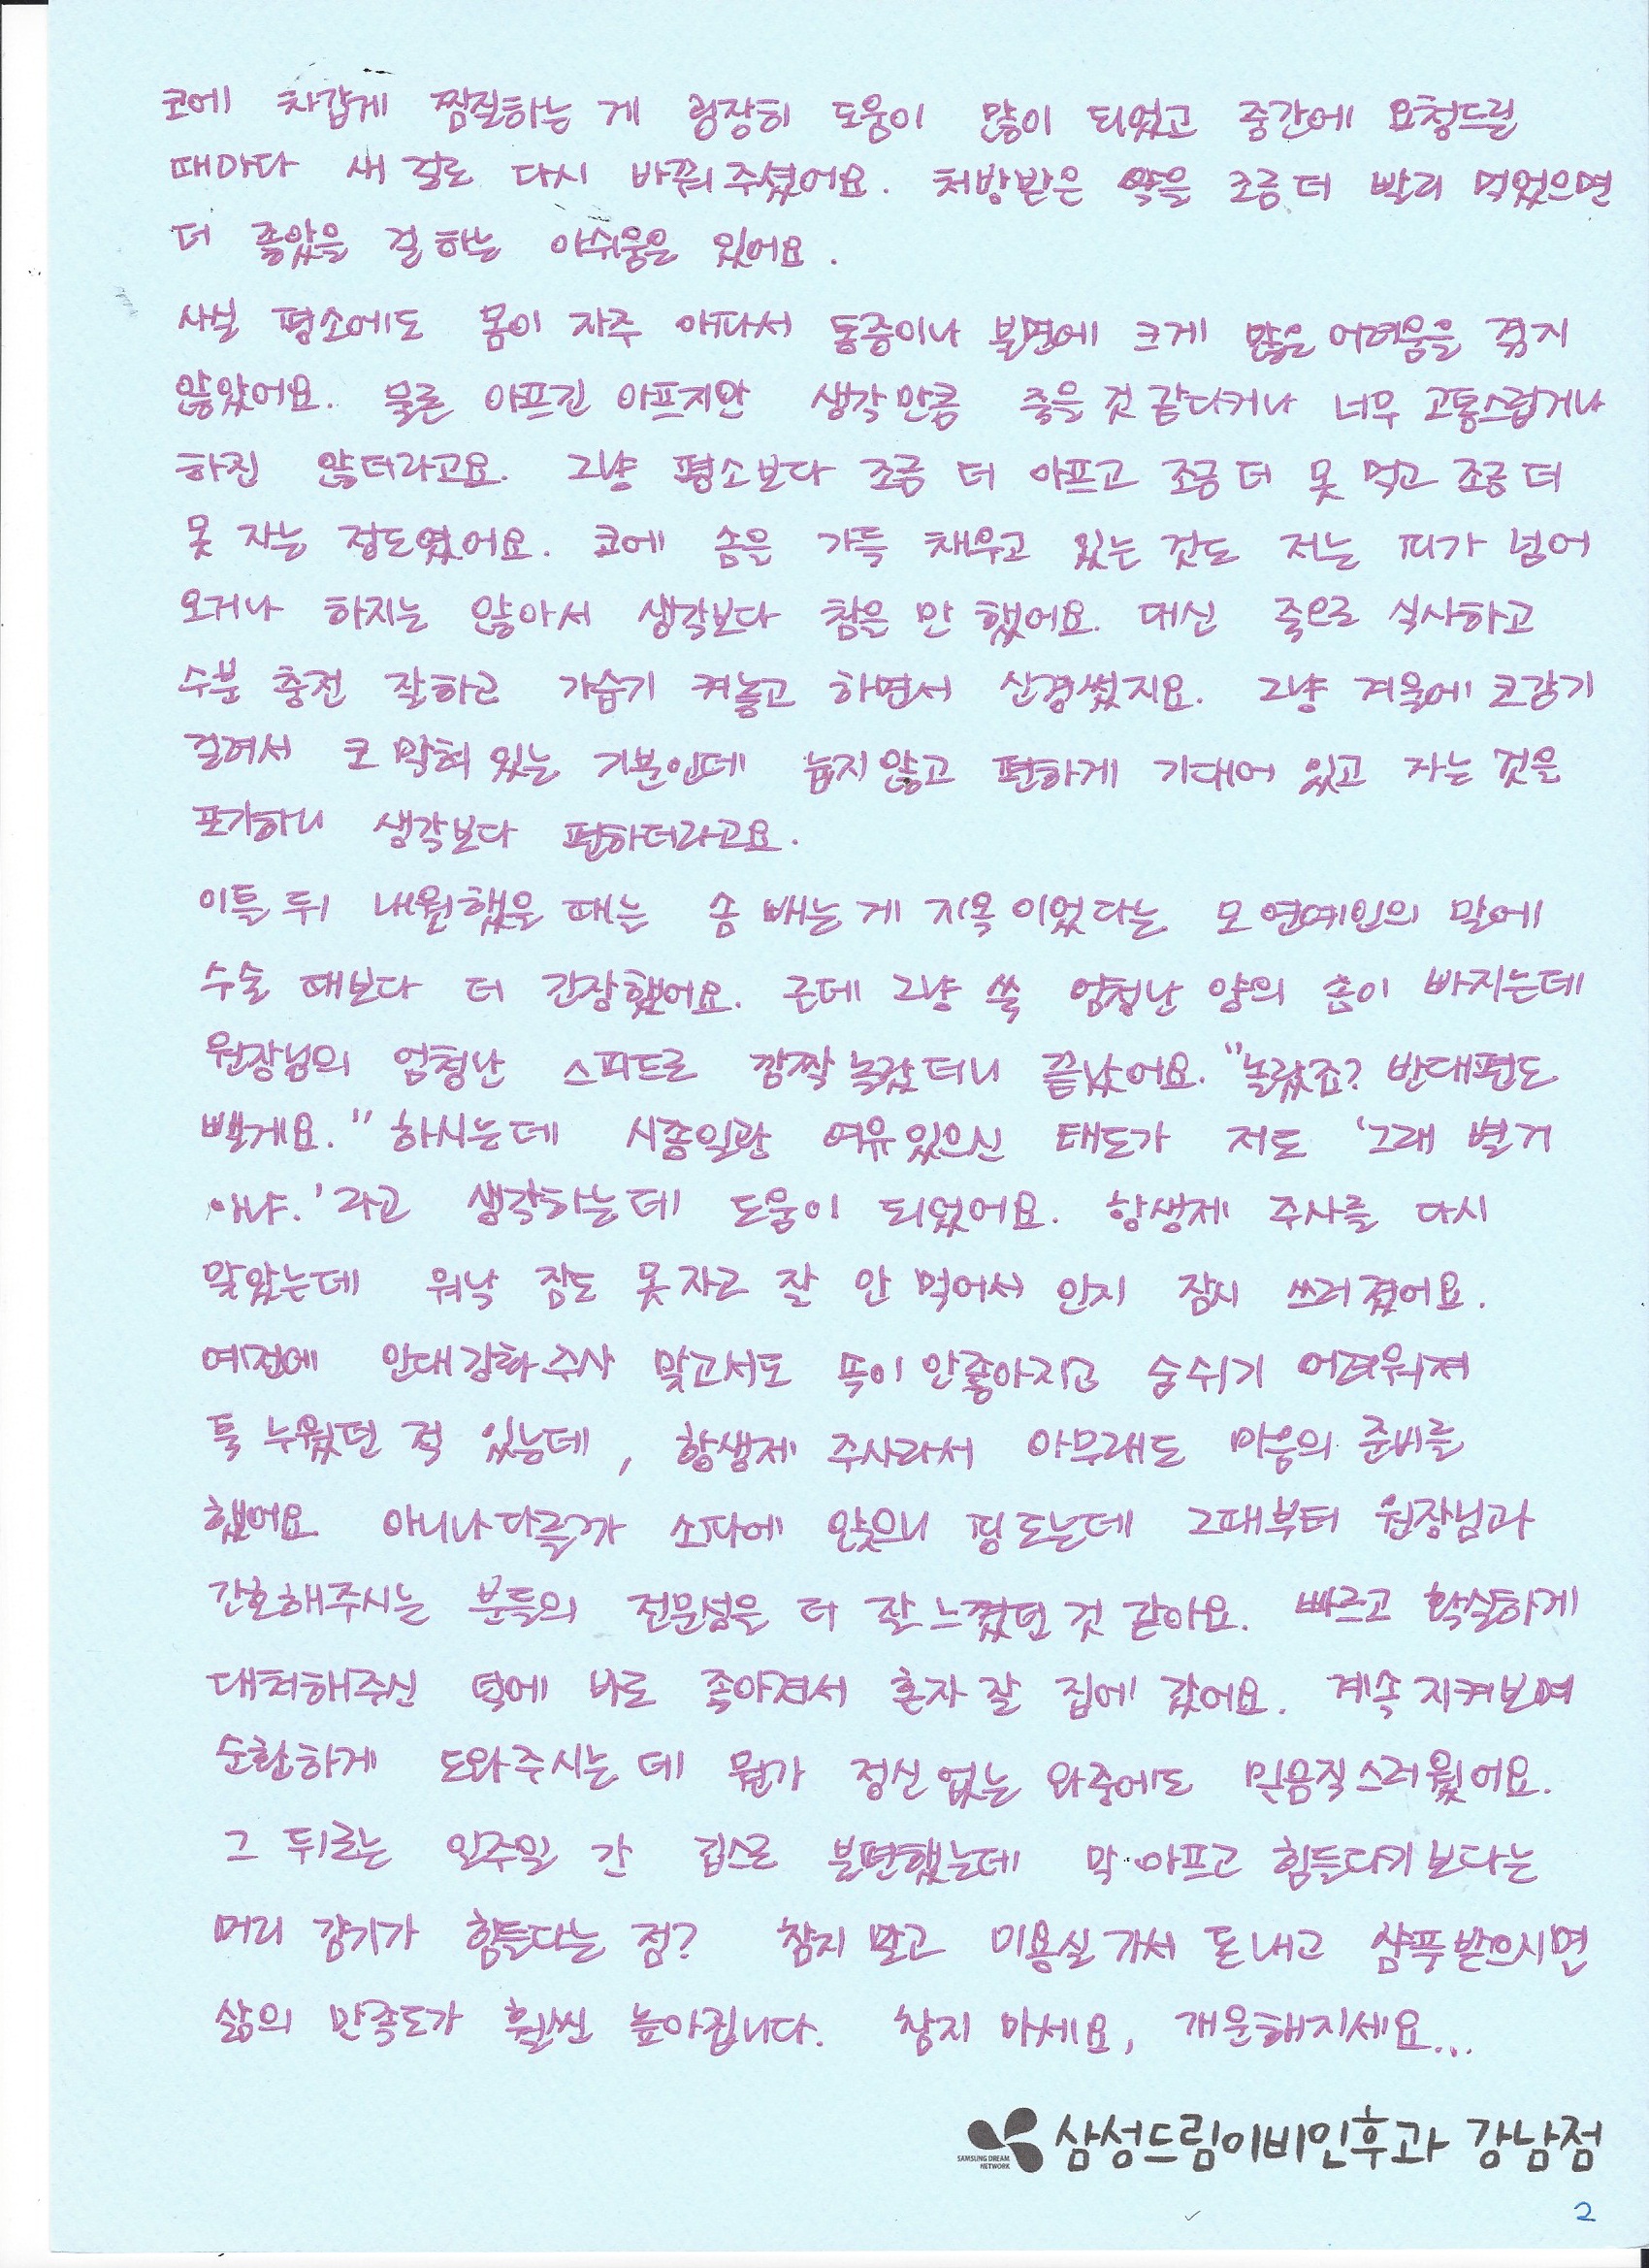 코에 차갑게 찜질하는 게 굉장히 도움이 많이 되었고 중간에 요청드릴
때마다 새 걸로 다시 바꿔주셨어요. 처방받은 약을 조금 더 빨리 먹었으면
더 좋았을 걸 하는 아쉬움은 있어요.
사실 평소에도 몸이 자주 아파서 통증이나 불편에 크게 많은 어려움을 겪지
않았어요. 물론 아프긴 아프지만 생각만큼 죽을 것 같다거나 너무 고통스럽거나
하진 않더라고요. 그냥 평소보다 조금 더 아프고 조금 더 못 먹고 조금 더
못 자는 정도였어요. 코에 솜을 가득 채우고 있는 것도 저는 피가 넘어
오거나 하지는 않아서 생각보다 참을 만 했어요. 대신 죽으로 식사하고
수분 충전 잘하고 가습기 켜놓고 하면서 신경썼지요. 그냥 겨울에 코감기
걸려서 코 막혀 있는 기분인데 눕지않고 편하게 기대어 있고 자는 것을
포기하니 생각보다 편하더라고요.
이틀 뒤 내원했을 때는 솜 빼는 게 지옥이었다는 모 연예인의 말에
수술 때보다 더 긴장했어요. 근데 그냥 쑥 엄청난 양의 솜이 빠지는데
원장님의 엄청난 스피드로 깜짝 놀랐더니 끝났어요. "놀랐죠? 반대편도
뺄게요." 하시는데 시종일관 여유있으신 태도가 저도 '그래 별거
아냐.'라고 생각하는데 도움이 되었어요. 항생제 주사를 다시
맞았는데 워낙 잠도 못자고 잘 안 먹어서 인지 잠시 쓰러졌어요.
예전에 인대강화주사 맞고서도 속이 안좋아지고 숨쉬기 어려워져
툭 누웠던 적 있는데, 항생제 주사라서 아무래도 마음의 준비를
했어요 아니나다를까 소파에 앉으니 핑 도는데 그때부터 원장님과
간호해주시는 분들의 전문성을 더 잘 느꼈던 것 같아요. 빠르고 확실하게
대처해주신 덕에 바로 좋아져서 혼자 잘 집에 갔어요. 계속 지켜보며
순환하게 도와주시는 데 뭔가 정신없는 와중에도 믿음직스러웠어요.
그 뒤로는 일주일 간 깁스로 불편했는데 막 아프고 힘들다기 보다는
머리 감기가 힘들다는 점? 참지 말고 미용실 가서 돈 내고 샴푸받으시면
삶의 만족도가 훨씬 높아집니다. 참지 마세요, 개운해지세요...
SAMSUNG DREAM
NETWORK
삼성드림이비인후과 강남점
2